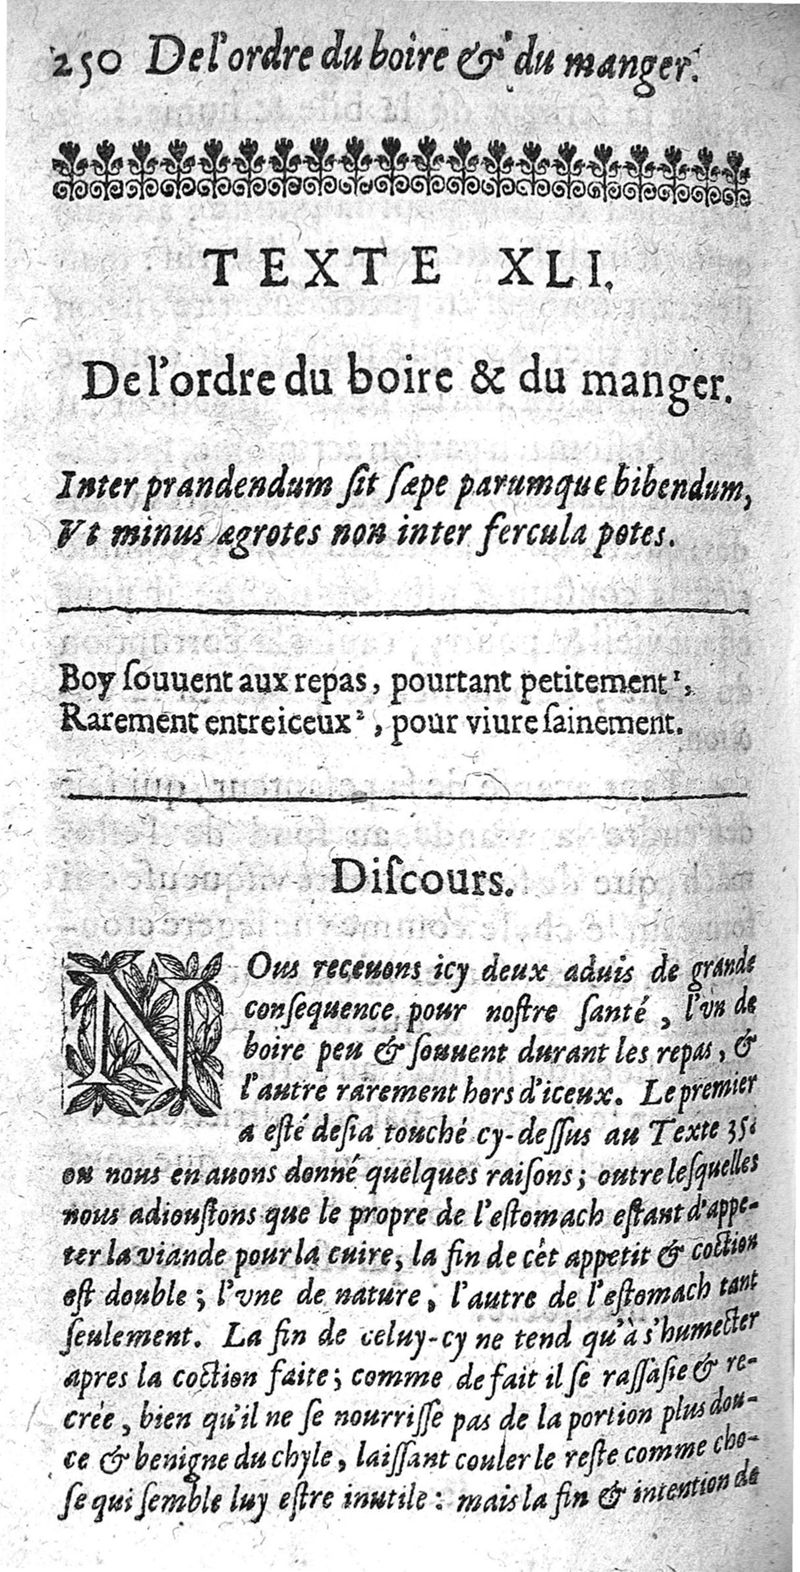 250 De l'ordre du boire & du manger.
TEXTE XLI.
De l'ordre du boire & du manger.
Inter prandendum ſit ſæpe parumque bibendum,
Vt minus ægrotes non inter fercula potes.
Boy ſouuent aux repas, pourtant petitement¹,
Rarement entre iceux², pour viure ſainement.
Diſcours.
NOus receuons icy deux aduis de grande
conſequence pour noſtre ſanté, l'vn de
boire peu & ſouuent durant les repas, &
l'autre rarement hors d'iceux. Le premier
a eſté deſia touché cy-deſſus au Texte 35:
ou nous en auons donné quelques raiſons; outre leſquelles
nous adiouſtons que le propre de l'eſtomach eſtant d'appe-
ter la viande pour la cuire, la fin de cét appetit & coction
eſt double; l'vne de nature, l'autre de l'eſtomach tant
ſeulement. La fin de celuy-cy ne tend qu'à s'humecter
apres la coction faite; comme de fait il ſe raſſaſie & re-
crée, bien qu'il ne ſe nourriſſe pas de la portion plus dou-
ce & benigne du chyle, laiſſant couler le reſte comme cho-
ſe qui ſemble luy eſtre inutile: mais la fin & intention de